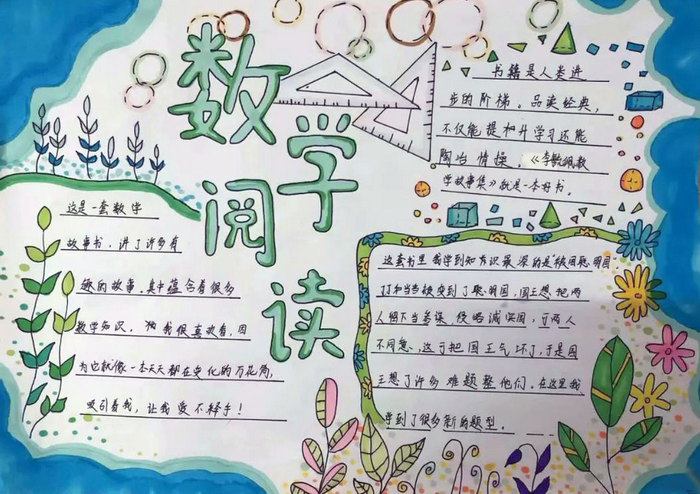 数学
阅读
书籍是人类进
步的阶梯。品读经典,
不仅能提升学习还能
陶冶情操。《李毓佩数
学故事集》就是一本好书。
这是一套数学
故事书,讲了许多有
趣的故事。其中蕴含着很多
数学知识,我很喜欢看,因
为它就像一本天天都在变化的万花筒,
吸引着我,让我爱不释手!
这套书里我学到知识最深的是
国王想把两
人留下当
不同意,这可把国王气坏了,于是国
王想了许多难题整他们。在这里我
学到了很多新的题型。